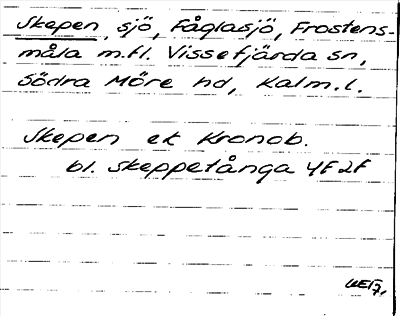 Skepen, sjö, Fåglasjö, Frostens-
måla m.fl. Vissefjärda sn,
Södra Möre hd, Kalm. l.
Skepen ek Kronob.
bl. Skeppetånga 4F2F